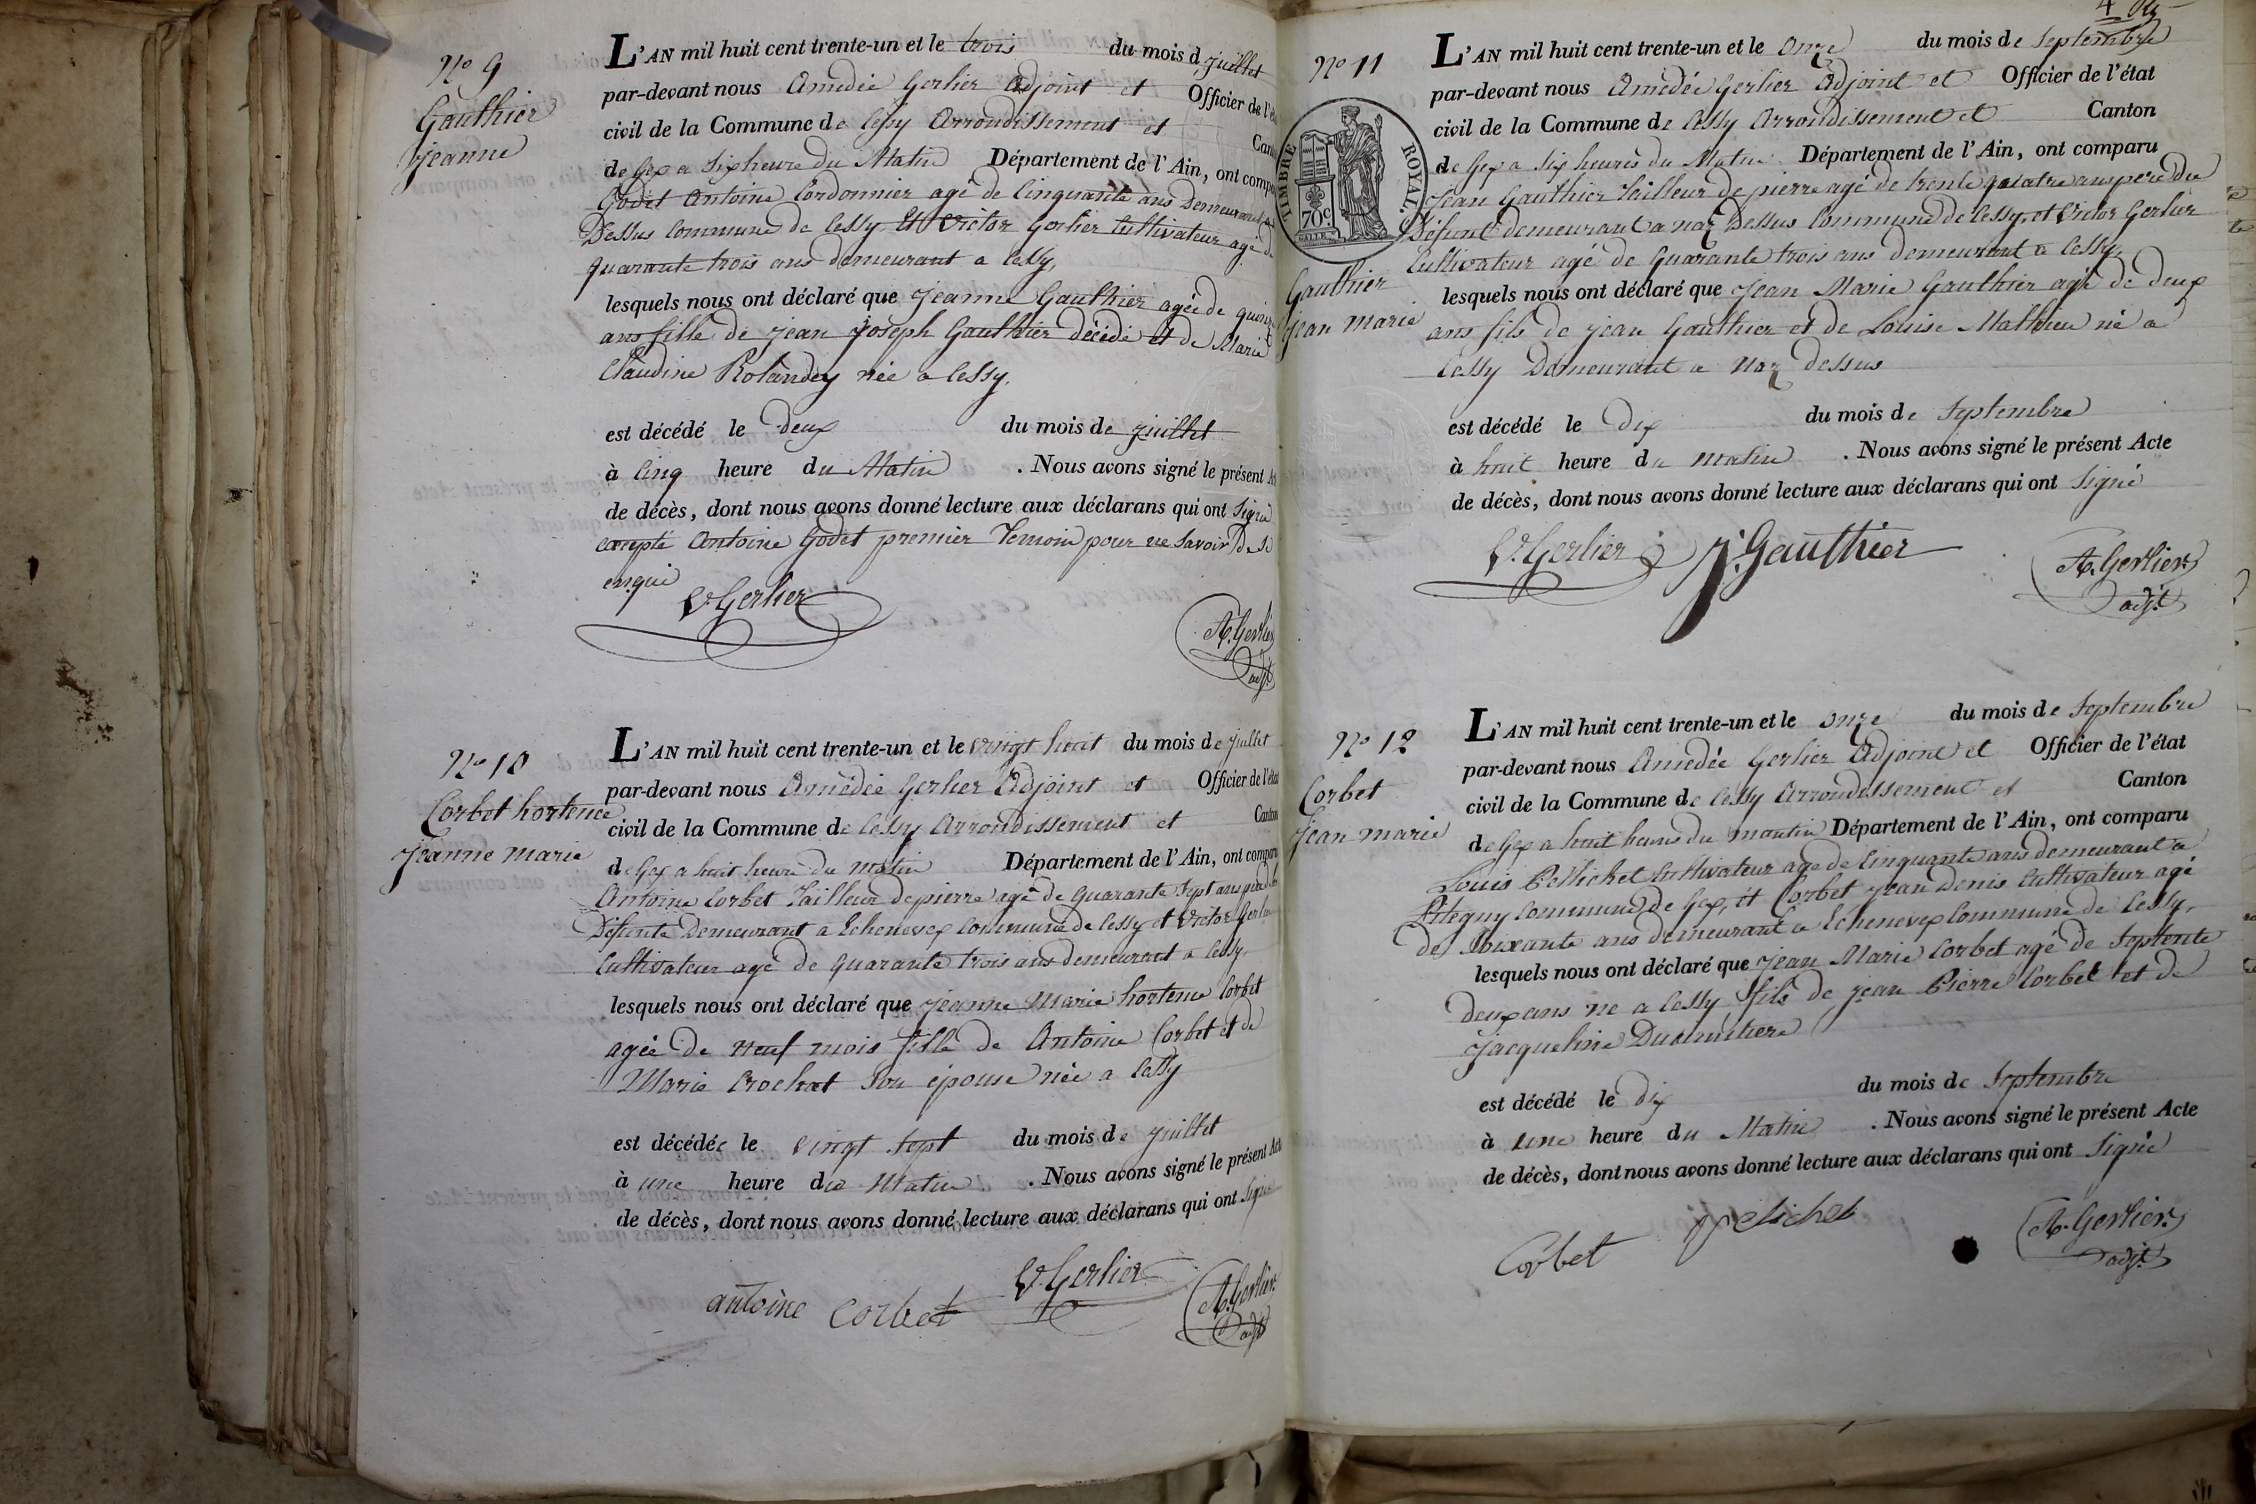 No 9
Gauthier
Jeanne
L'AN mil huit cent trente-un et le trois du mois d juillet
par-devant nous Amédée Gerlier Adjoint et Officier de l'éta
civil de la Commune de Cessy Arrondissement et Can
de Gex a Six heure du Matin Département de l'Ain, ont compa
Godet Antoine Cordonnier agé de Cinquante ans Demeurant
Dessus Commune de Cessy Et Victor Gerlier Cultivateur agé de
quarante trois ans demeurant a Cessy,
lesquels nous ont déclaré que Jeanne Gauthier agée de quinze
ans fille de jean joseph Gauthier décédé et de Marie
Claudine Rolandey née a Cessy.
est décédé le deux du mois de juillet
à Cinq heure du Matin . Nous avons signé le présent A
de décès, dont nous avons donné lecture aux déclarans qui ont Signé
excepte Antoine Godet premier Temoin pour ne Savoir De ce
enqui
V. Gerlier
A. Gerlier
adjt
No 10
Corbet hortence
Jeanne marie
L'AN mil huit cent trente-un et le vingt huit du mois de juillet
par-devant nous Amédée Gerlier Adjoint et Officier de l'état
civil de la Commune de Cessy Arrondissement et Canton
de Gex a huit heure du matin Département de l'Ain, ont comparu
Antoine Corbet Tailleur de pierre agé de quarante Sept ans pere de la
Défunte Demeurant a Echenevex Commune de Cessy et Victor Gerlier
Cultivateur agé de quarante trois ans demeurant a Cessy.
lesquels nous ont déclaré que jeanne Marie hortence Corbet
agée de neuf mois fille de Antoine Corbet et de
Marie Crochat Son épouse née a Cessy
est décédée le vingt Sept du mois de juillet
à une heure du Matin . Nous avons signé le présent Acte
de décès, dont nous avons donné lecture aux déclarans qui ont Signé
antoine Corbet
V. Gerlier
A. Gerlier
adjt
4
No 11
TIMBRE ROYAL.
70c
Gauthier
Jean marie
L'AN mil huit cent trente-un et le Onze du mois de Septembre
par-devant nous Amédée Gerlier Adjoint et Officier de l'état
civil de la Commune de Cessy Arrondissement et Canton
de Gex a Six heures du Matin Département de l'Ain, ont comparu
Jean Gauthier Tailleur de pierre agé de trente quatre ans pere du
Défunt demeurant a naz Dessus Commune de Cessy, et Victor Gerlier
Cultivateur agé de Quarante trois ans demeurant a Cessy,
lesquels nous ont déclaré que Jean Marie Gauthier agé de deux
ans fils de jean Gauthier et de Louise Mathieu né a
Cessy Demeurant a Naz dessus
est décédé le dix du mois de Septembre
à huit heure du matin . Nous avons signé le présent Acte
de décès, dont nous avons donné lecture aux déclarans qui ont Signé
V. Gerlier
J. Gauthier
A. Gerlier
adjt
No 12
Corbet
Jean marie
L'AN mil huit cent trente-un et le onze du mois de Septembre
par-devant nous Amédée Gerlier Adjoint et Officier de l'état
civil de la Commune de Cessy Arrondissement et Canton
de Gex a huit heures du moutin Département de l'Ain, ont comparu
Louis Pellichet Cultivateur agé de Cinquante ans demeurant a
Pitegny Commune de Gex, et Corbet Jean Denis Cultivateur agé
de Soixante ans demeurant a Echenevex Commune de Cessy,
lesquels nous ont déclaré que Jean Marie Corbet agé de Septente
deux ans né a Cessy fils de jean Pierre Corbet et de
Jacqueline Dusimitiere
est décédé le dix du mois de Septembre
à une heure du Matin . Nous avons signé le présent Acte
de décès, dont nous avons donné lecture aux déclarans qui ont Signé
Corbet
A. Gerlier
adjt